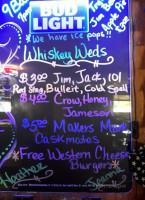 BUD
LIGHT
*We have ice pops!!
Whiskey Weds
$3.00 Jim, Jack, 101
Red Stag, Bulleit, Cold Spell
$4.00 Crown, Honey,
Jameson
$5.00 Makers Mark
Caskmates
*Free Western Cheese
Burgers*